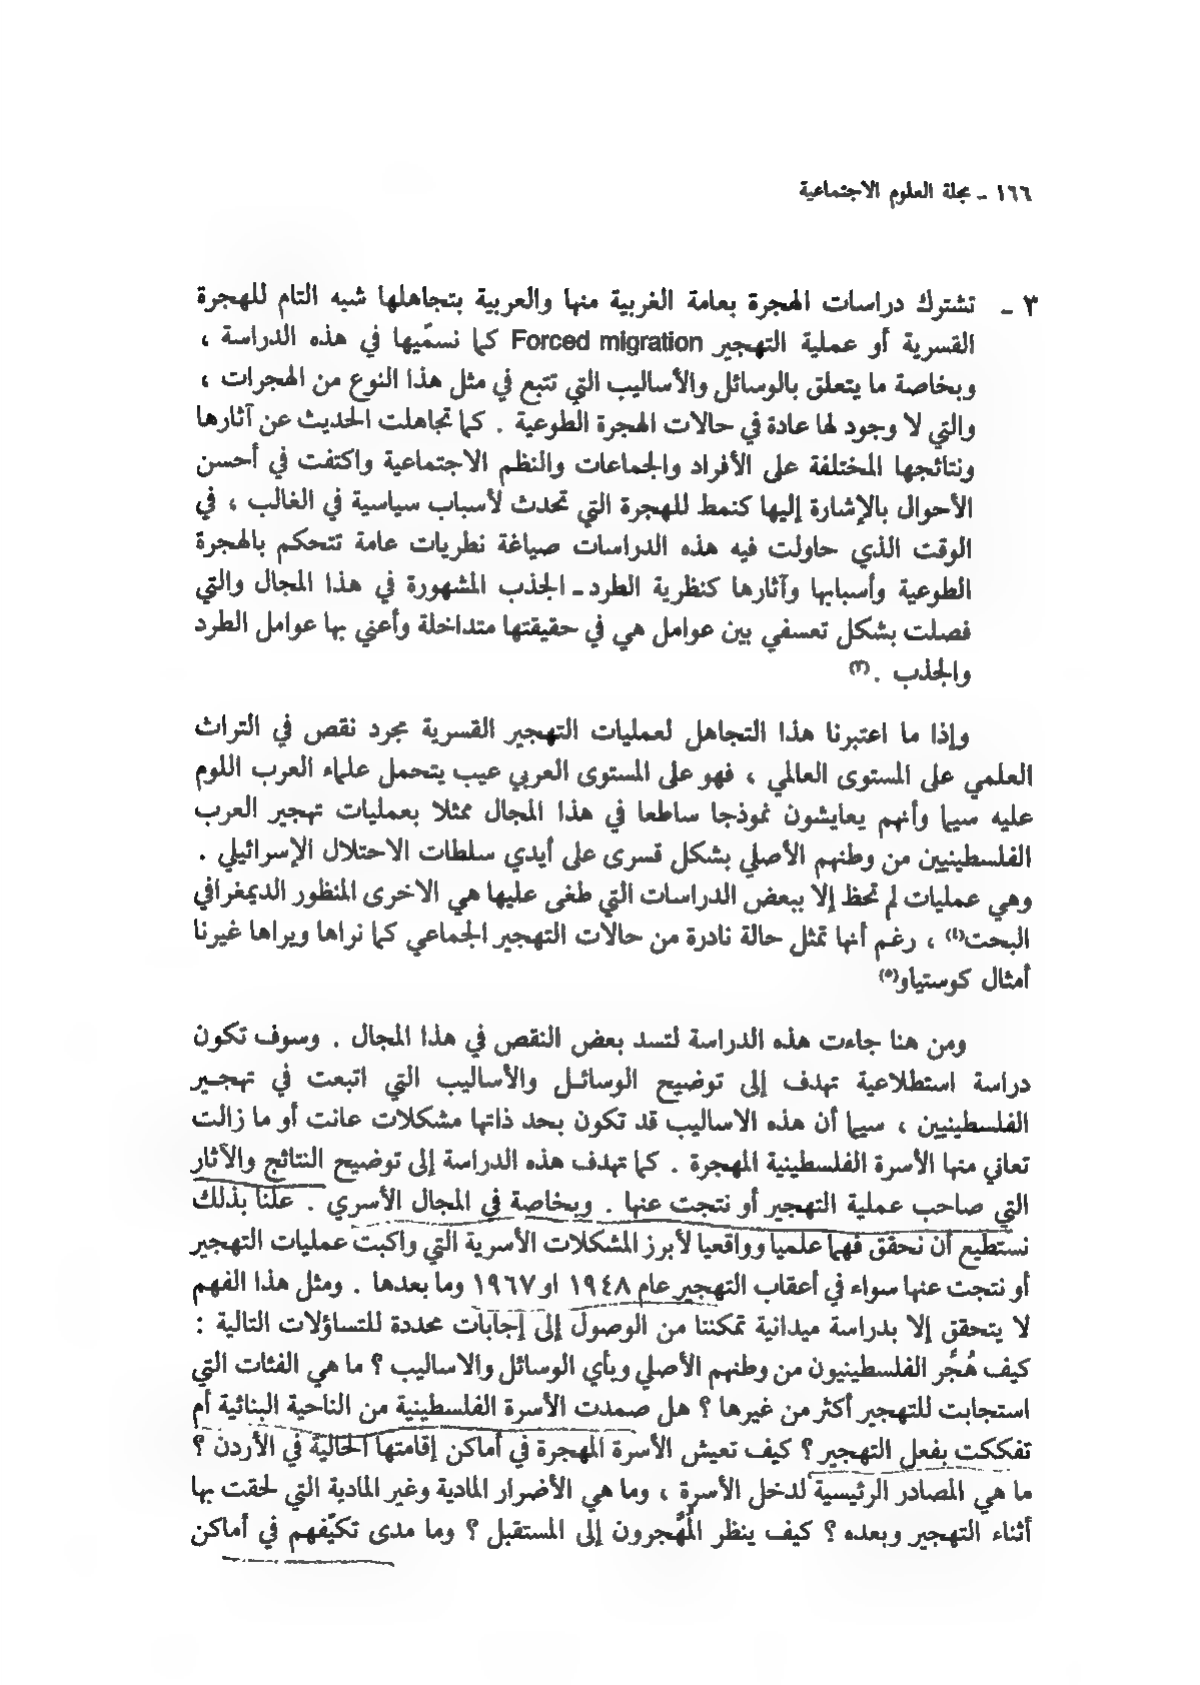 ١٦٦ ـ مجلة العلوم الاجتماعية
٣ ـ تشترك دراسات الهجرة بعامة الغربية منها والعربية بتجاهلها شبه التام للهجرة
القسرية أو عملية التهجير Forced migration كما نسمّيها في هذه الدراسة ،
وبخاصة ما يتعلق بالوسائل والأساليب التي تتبع في مثل هذا النوع من الهجرات ،
والتي لا وجود لها عادة في حالات الهجرة الطوعية . كما تجاهلت الحديث عن آثارها
ونتائجها المختلفة على الأفراد والجماعات والنظم الاجتماعية واكتفت في أحسن
الأحوال بالإشارة إليها كنمط للهجرة التي تحدث لأسباب سياسية في الغالب ، في
الوقت الذي حاولت فيه هذه الدراسات صياغة نظريات عامة تتحكم بالهجرة
الطوعية وأسبابها وآثارها كنظرية الطرد ـ الجذب المشهورة في هذا المجال والتي
فصلت بشكل تعسفي بين عوامل هي في حقيقتها متداخلة وأعني بها عوامل الطرد
والجذب . (٣)
وإذا ما اعتبرنا هذا التجاهل لعمليات التهجير القسرية مجرد نقص في التراث
العلمي على المستوى العالمي ، فهو على المستوى العربي عيب يتحمل علماء العرب اللوم
عليه سيما وأنهم يعايشون نموذجا ساطعا في هذا المجال ممثلا بعمليات تهجير العرب
الفلسطينيين من وطنهم الأصلي بشكل قسرى على أيدي سلطات الاحتلال الإسرائيلي .
وهي عمليات لم تحظ إلا ببعض الدراسات التي طغى عليها هي الاخرى المنظور الديمغرافي
البحت(٤) ، رغم أنها تمثل حالة نادرة من حالات التهجير الجماعي كما نراها ويراها غيرنا
أمثال كوستياو(٥)
ومن هنا جاءت هذه الدراسة لتسد بعض النقص في هذا المجال . وسوف تكون
دراسة استطلاعية تهدف إلى توضيح الوسائل والأساليب التي اتبعت في تهجير
الفلسطينيين ، سيما أن هذه الاساليب قد تكون بحد ذاتها مشكلات عانت أو ما زالت
تعاني منها الأسرة الفلسطينية المهجرة . كما تهدف هذه الدراسة إلى توضيح النتائج والآثار
التي صاحب عملية التهجير أو نتجت عنها . وبخاصة في المجال الأسري . علنا بذلك
نستطيع أن نحقق فهما علميا وواقعيا لأبرز المشكلات الأسرية التي واكبت عمليات التهجير
أو نتجت عنها سواء في أعقاب التهجير عام ١٩٤٨ او ١٩٦٧ وما بعدها . ومثل هذا الفهم
لا يتحقق إلا بدراسة ميدانية تمكننا من الوصول إلى إجابات محددة للتساؤلات التالية :
كيف هُجِّر الفلسطينيون من وطنهم الأصلي وبأي الوسائل والاساليب ؟ ما هي الفئات التي
استجابت للتهجير أكثر من غيرها ؟ هل صمدت الأسرة الفلسطينية من الناحية البنائية أم
تفككت بفعل التهجير ؟ كيف تعيش الأسرة المهجرة في أماكن إقامتها الحالية في الأردن ؟
ما هي المصادر الرئيسية لدخل الأسرة ، وما هي الأضرار المادية وغير المادية التي لحقت بها
أثناء التهجير وبعده ؟ كيف ينظر المُهَّجرون إلى المستقبل ؟ وما مدى تكيّفهم في أماكن